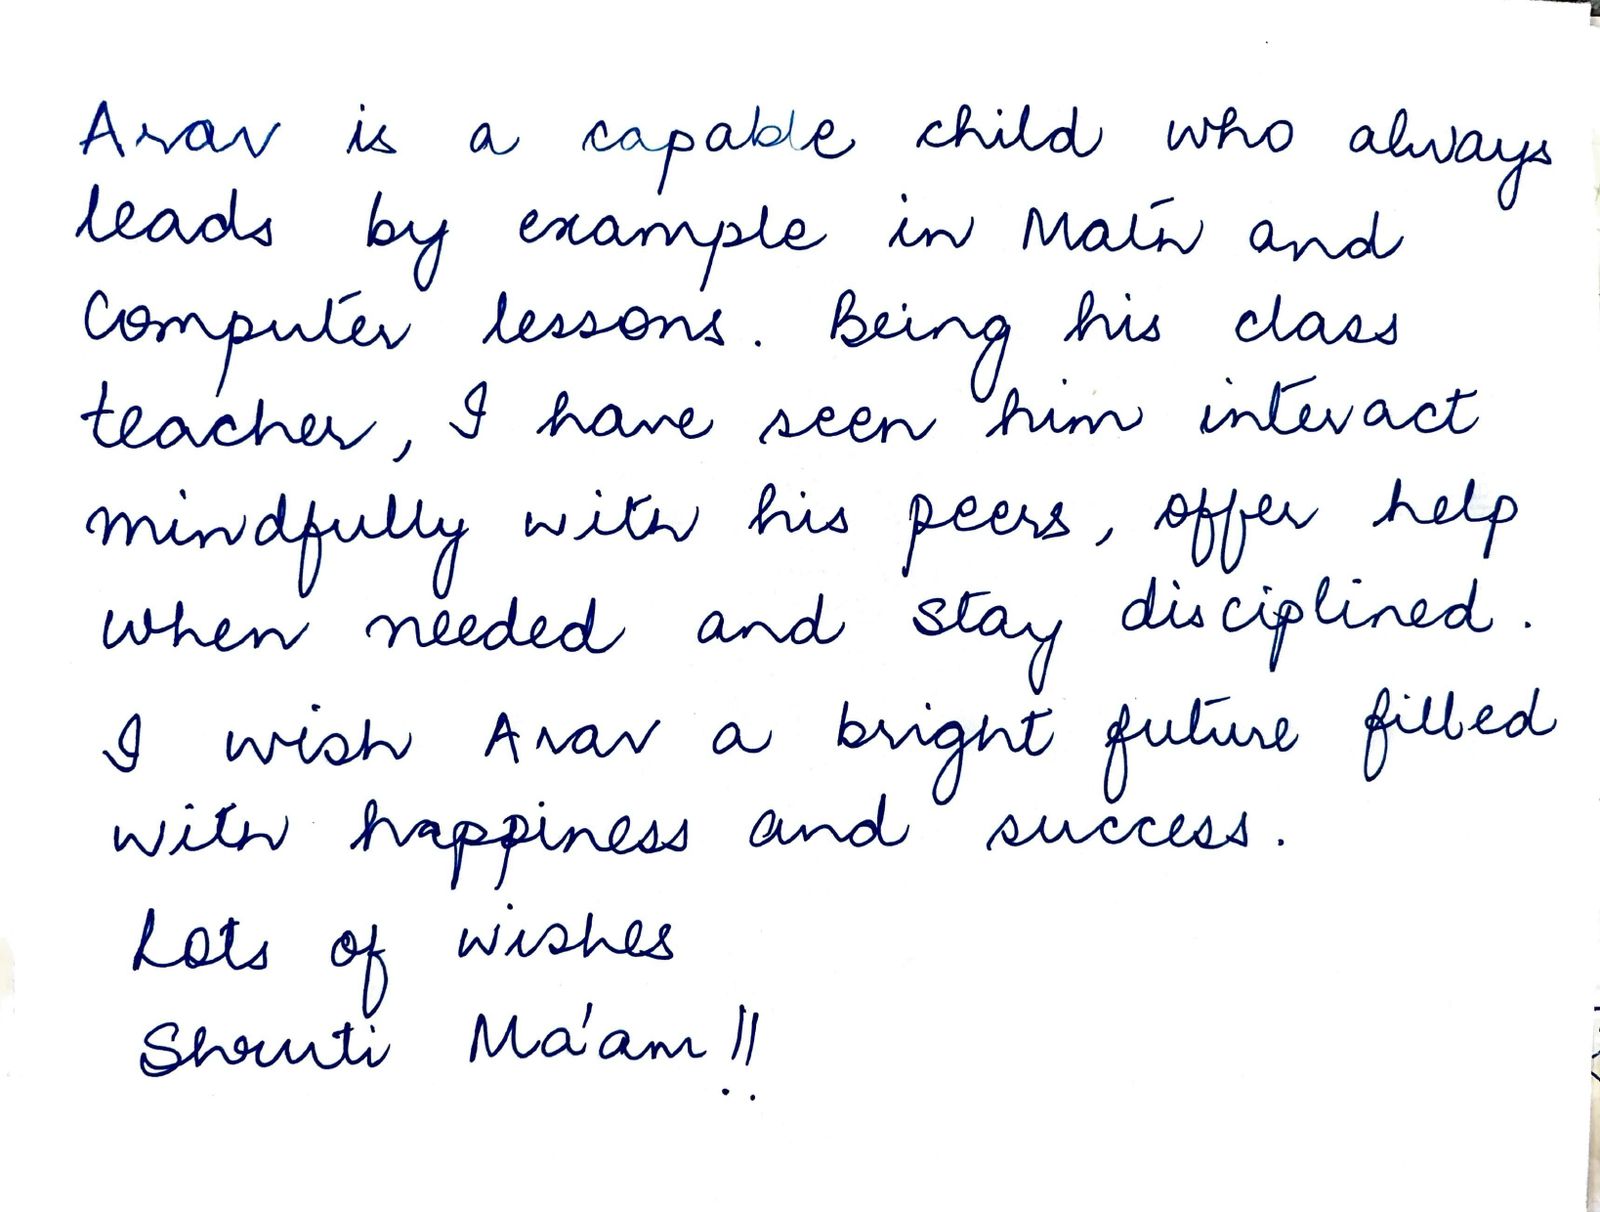 Arav is a capable child who always
leads by example in Math and
Computer lessons. Being his class
teacher, I have seen him interact
mindfully with his peers, offer help
when needed and stay disciplined.
I wish Arav a bright future filled
with happiness and success.
Lots of wishes
Shruti Ma'am!!